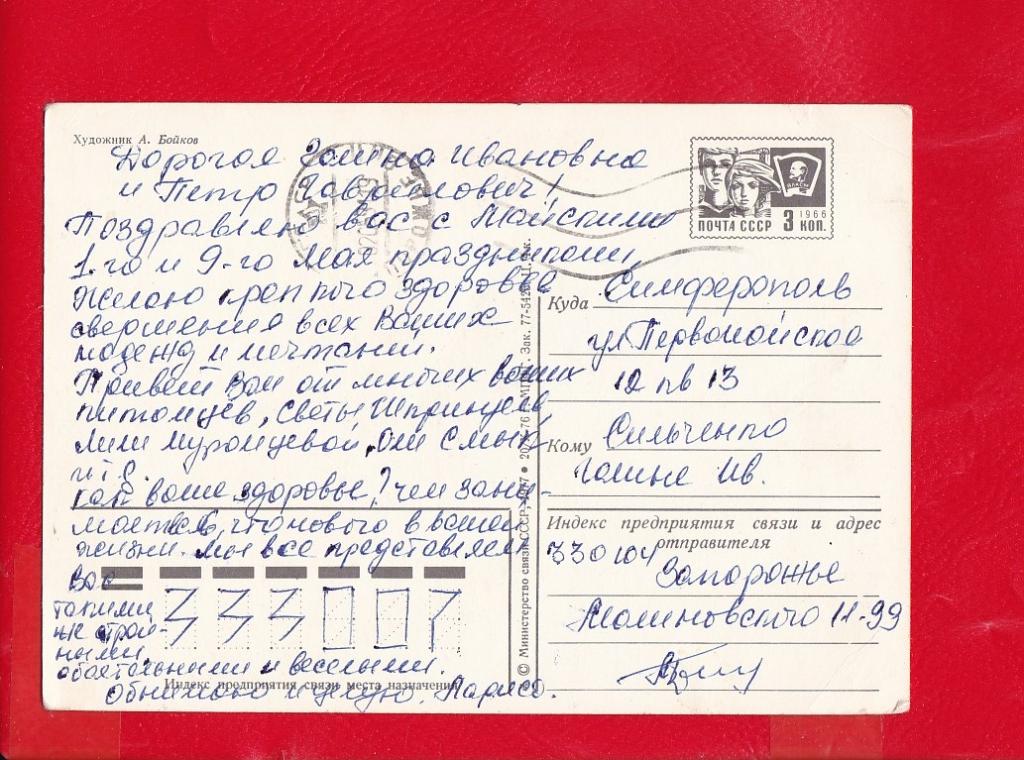 Художник А. Бойков
Дорогая Галина Ивановна
и Петр Гаврилович!
Поздравляю Вас с Майскими
1-го и 9-го Мая праздниками,
Желаю крепкого здоровья
свершения всех Ваших
надежд и мечтаний.
Привет Вам от многих ваших
питомцев, Светы
Лили Муромцевой, Оли
и т.д.
Как ваше здоровье? Чем зани-
маетесь, что нового в вашей
жизни. Мы все представляем
Вас
такими
же строй-
ными,
обаятельными и веселыми.
Обнимаю и целую. Лариса.
333007
Индекс предприятия связи места назначения
© Министерство связи СССР, Зак. 77-542
ВЛКСМ
1966
ПОЧТА СССР 3 КОП.
Куда Симферополь
ул Первомайская
12 кв 13
Кому Сильченко
Галине Ив.
Индекс предприятия связи и адрес
отправителя
330104
Запорожье
Малиновского 11-99